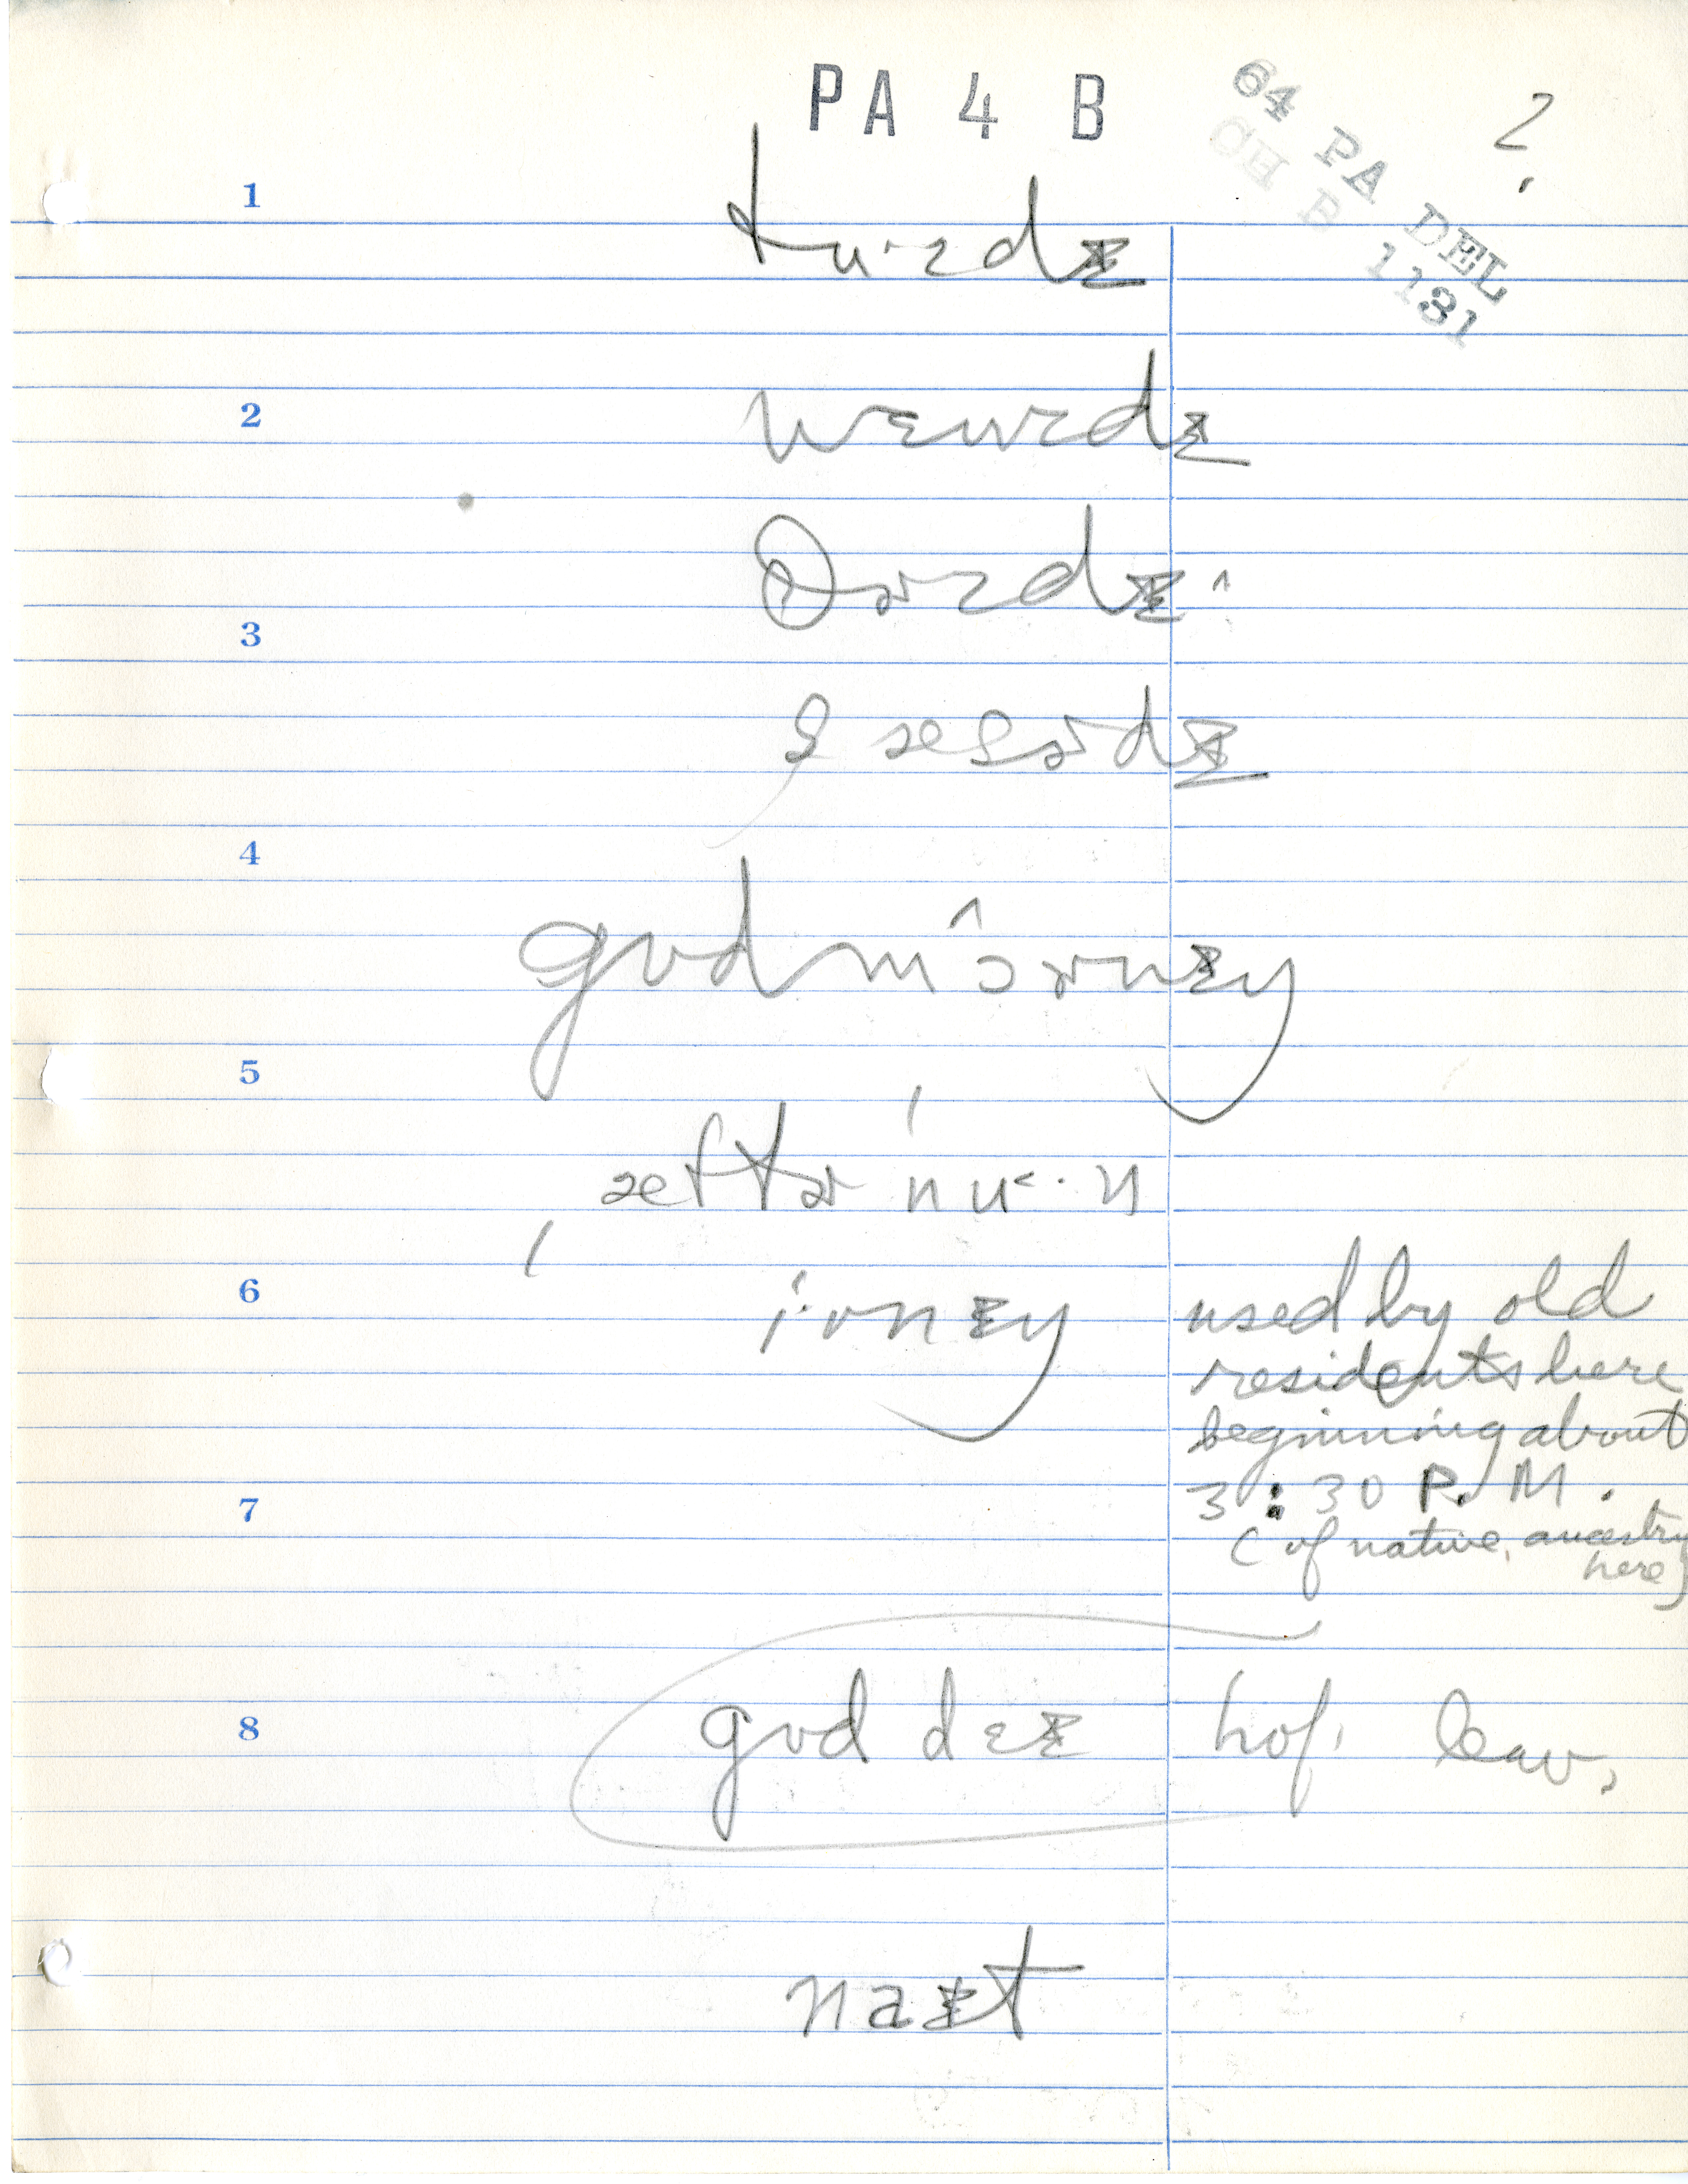 PA 4 B
64 PA DEL
CH B 1131
2.
1
tu·ɚzdɪ
2
wɛnzdɪ
θɚzdɪ ^
3
sæɚdɪ
4
gʊd mɔ̂ɚnɪŋ
5
æftɚ nu˂·n
6
i·vnɪŋ used by old
residents here
beginning about
3:30 P. M.
7
(of native ancestry
here)
8
gʊd dɛɪ hof. leav.
naɪt